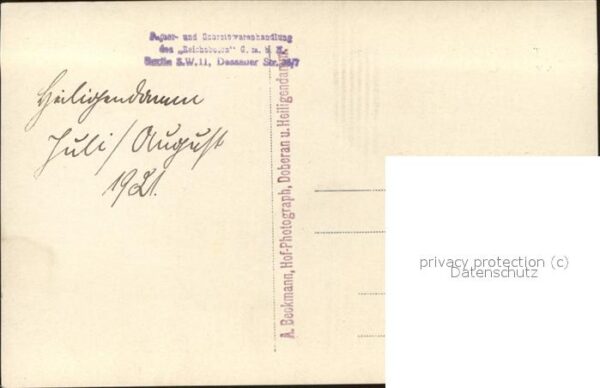 Papier- und Schreibwarenhandlung
des „Reichsboten“ G. m. b. H.
Berlin S.W.11, Dessauer Str. 36/7
Heiligendamm
Juli/August
1921.
A. Beckmann, Hof-Photograph, Doberan u. Heiligendamm.
privacy protection (c)
Datenschutz